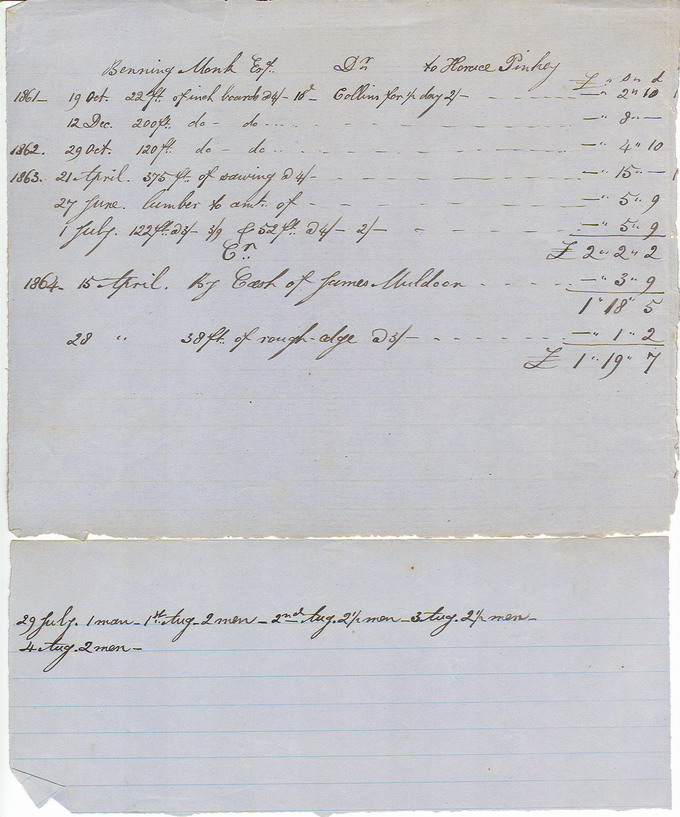 Benning Monk Esqr. Dr. to Horace Pinkey
£ " s " d
1861 – 19 Oct. 22 ft. of inch boards @ 4/– 10d – Collins for ½ day 2/– – " 2 " 10
12 Dec. 200 ft. do – do – " 8 " –
1862. 29 Oct. 120 ft. do – do – " 4 " 10
1863. 21 April. 375 ft. of sawing @ 4/– – " 15 " –
27 June. lumber to amt. of – " 5 " 9
1 July. 122 ft. @ 3/– 3/9 & 52 ft. @ 4/– 2/– – " 5 " 9
£ 2 " 2 " 2
Cr.
1864 – 15 April. By Cash of James Muldoon – " 3 " 9
1 " 18 " 5
28 " 38 ft. of rough-edge @ 3/– – " 1 " 2
£ 1 " 19 " 7
29 July. 1 man – 1st Aug. 2 men – 2nd Aug. 2½ men – 3 Aug. 2½ men –
4 Aug. 2 men –